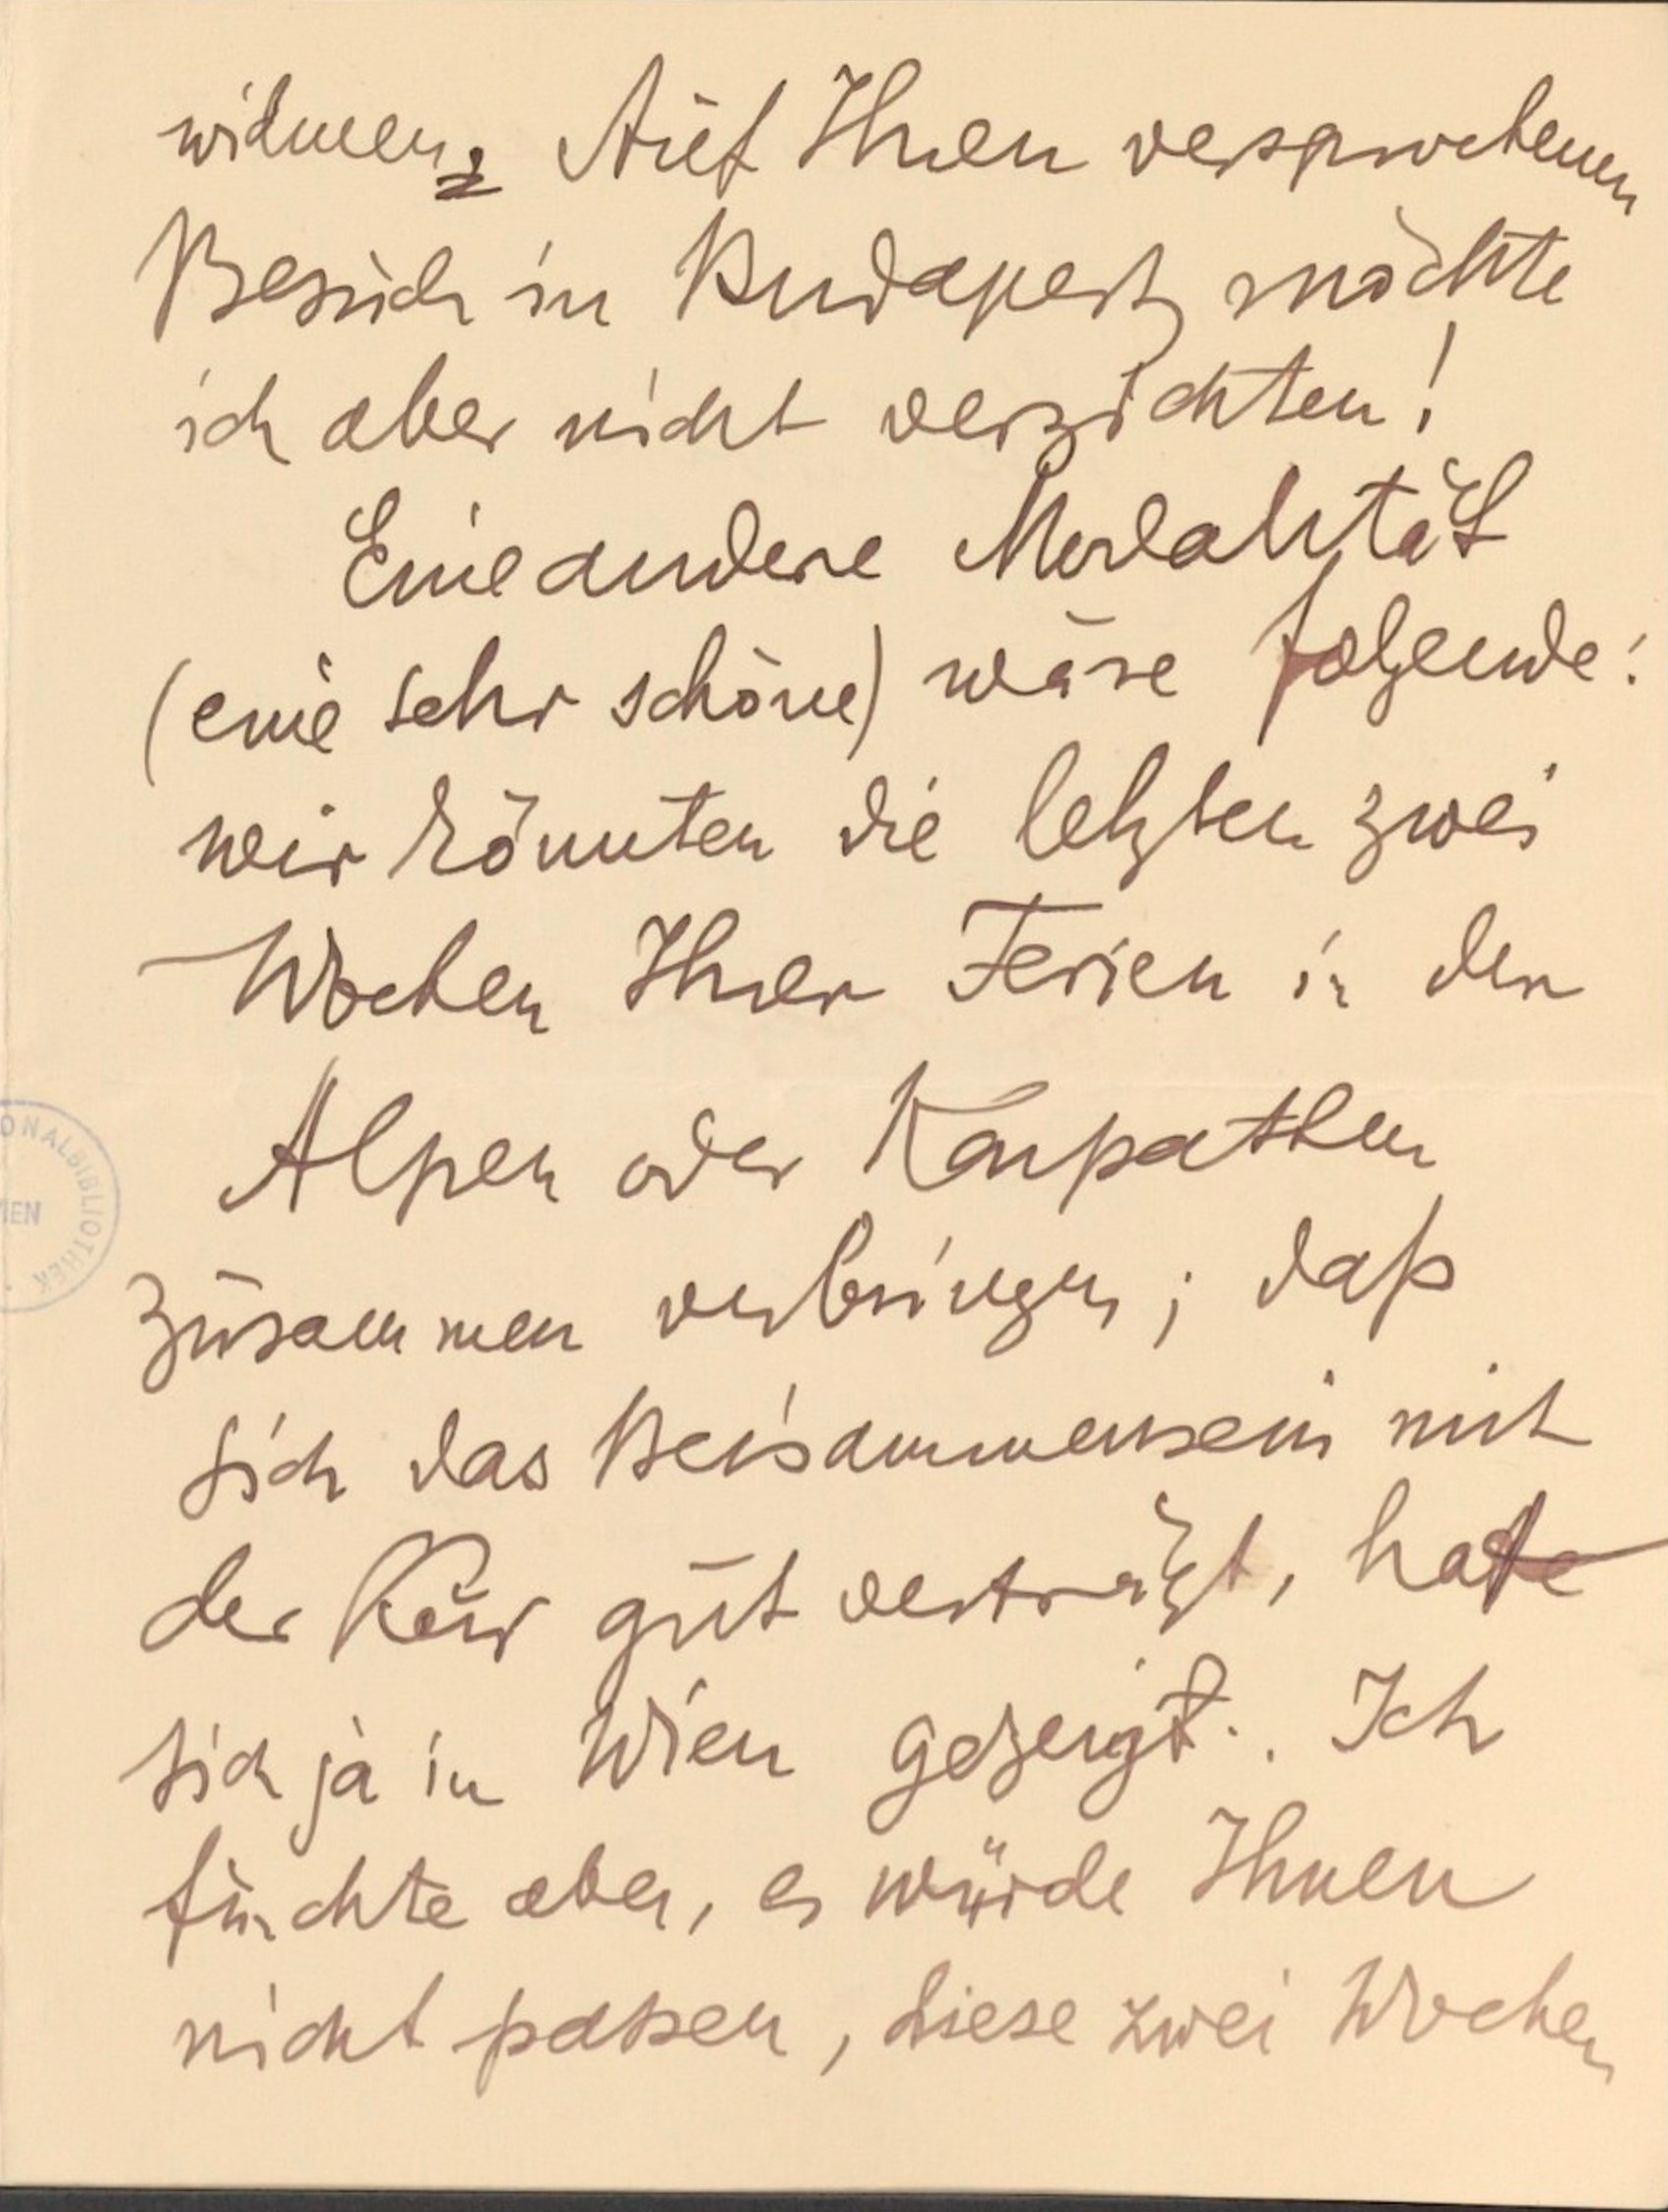 widmen. Auf Ihren versprochenen
Besuch in Budapest möchte
ich aber nicht verzichten!
Eine andere Modalität
(eine sehr schöne) wäre folgende:
wir könnten die letzten zwei
Wochen Ihrer Ferien in den
Alpen oder Karpathen
zusammen verbringen; daß
sich das Beisammensein mit
der Kur gut verträgt, hat
sich ja in Wien gezeigt. Ich
fürchte aber, es würde Ihnen
nicht passen, diese zwei Wochen
ONALBIBLIOTHEK
WIEN